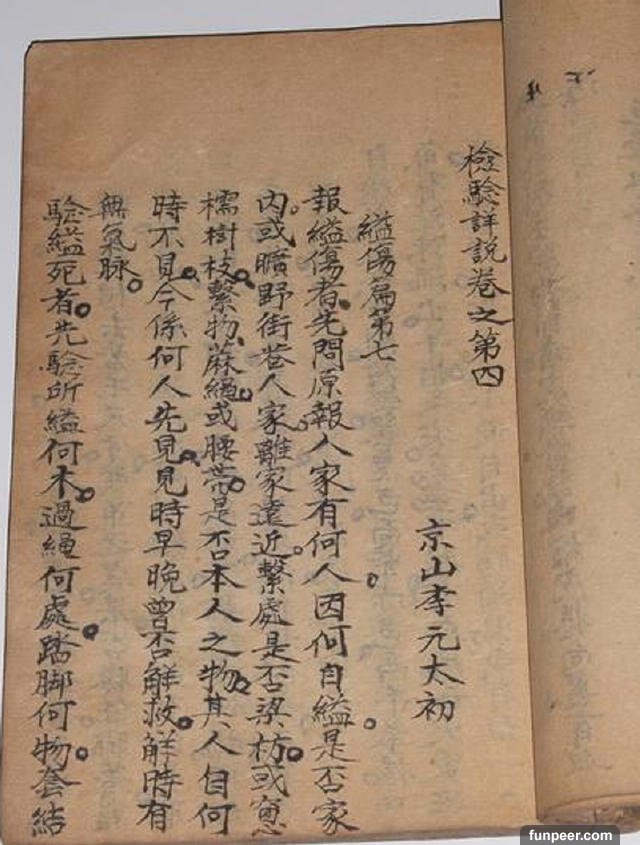 檢驗詳說卷之第四
京山李元太初
縊傷篇第七
報縊傷者先問原報人家有何人因何自縊是否家
內或曠野街巷人家離家遠近繫處是否梁枋或窓
檽樹枝繫物蔴繩或腰帶是否本人之物其人自何
時不見今係何人先見見時早晚曾否解救解時有
無氣脉
驗縊死者先驗所縊何木過繩何處踏脚何物套結
funpeer.com